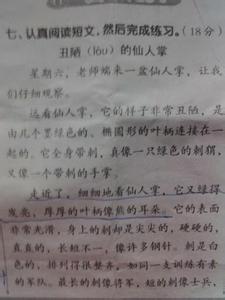 七、认真阅读短文，然后完成练习。(18分)
丑陋(lòu)的仙人掌
星期六，老师端来一盆仙人掌，让我
们仔细观察。
远看仙人掌，它的样子非常丑陋，是
由几个墨绿色的、椭圆形的叶柄连接在一
起的。它全身带刺，真像一只绿色的刺猬，
又像一个带刺的手掌。
走近了，细细地看仙人掌，它又绿得
发亮，厚厚的叶柄像熊的耳朵。它的表面
非常光滑，身上的刺却是尖尖的，硬硬的，
直直的，长短不一，像许多钢针。刺是白
色的，排列得很整齐，如同一支训练有素
的军队。最长的刺像将军，短的刺像士兵，